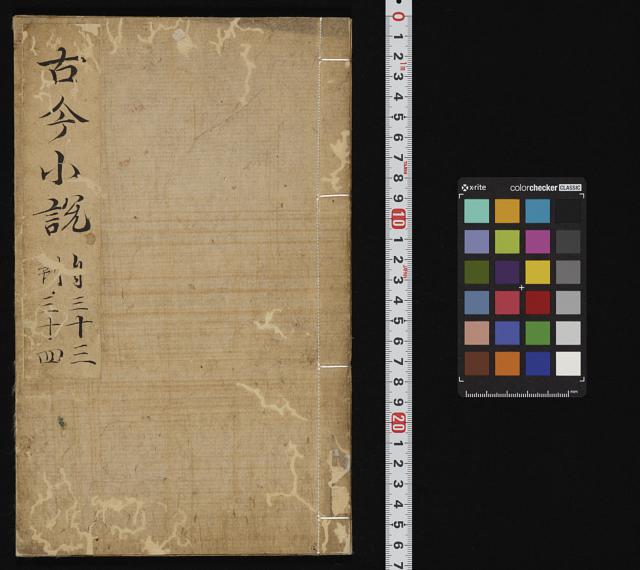 古今小說
自三十三
到三十四
0 1 2 3 4 5 6 7 8 9 10 1 2 3 4 5 6 7 8 9 20 1 2 3 4 5 6 7
x-rite
colorchecker CLASSIC
mm